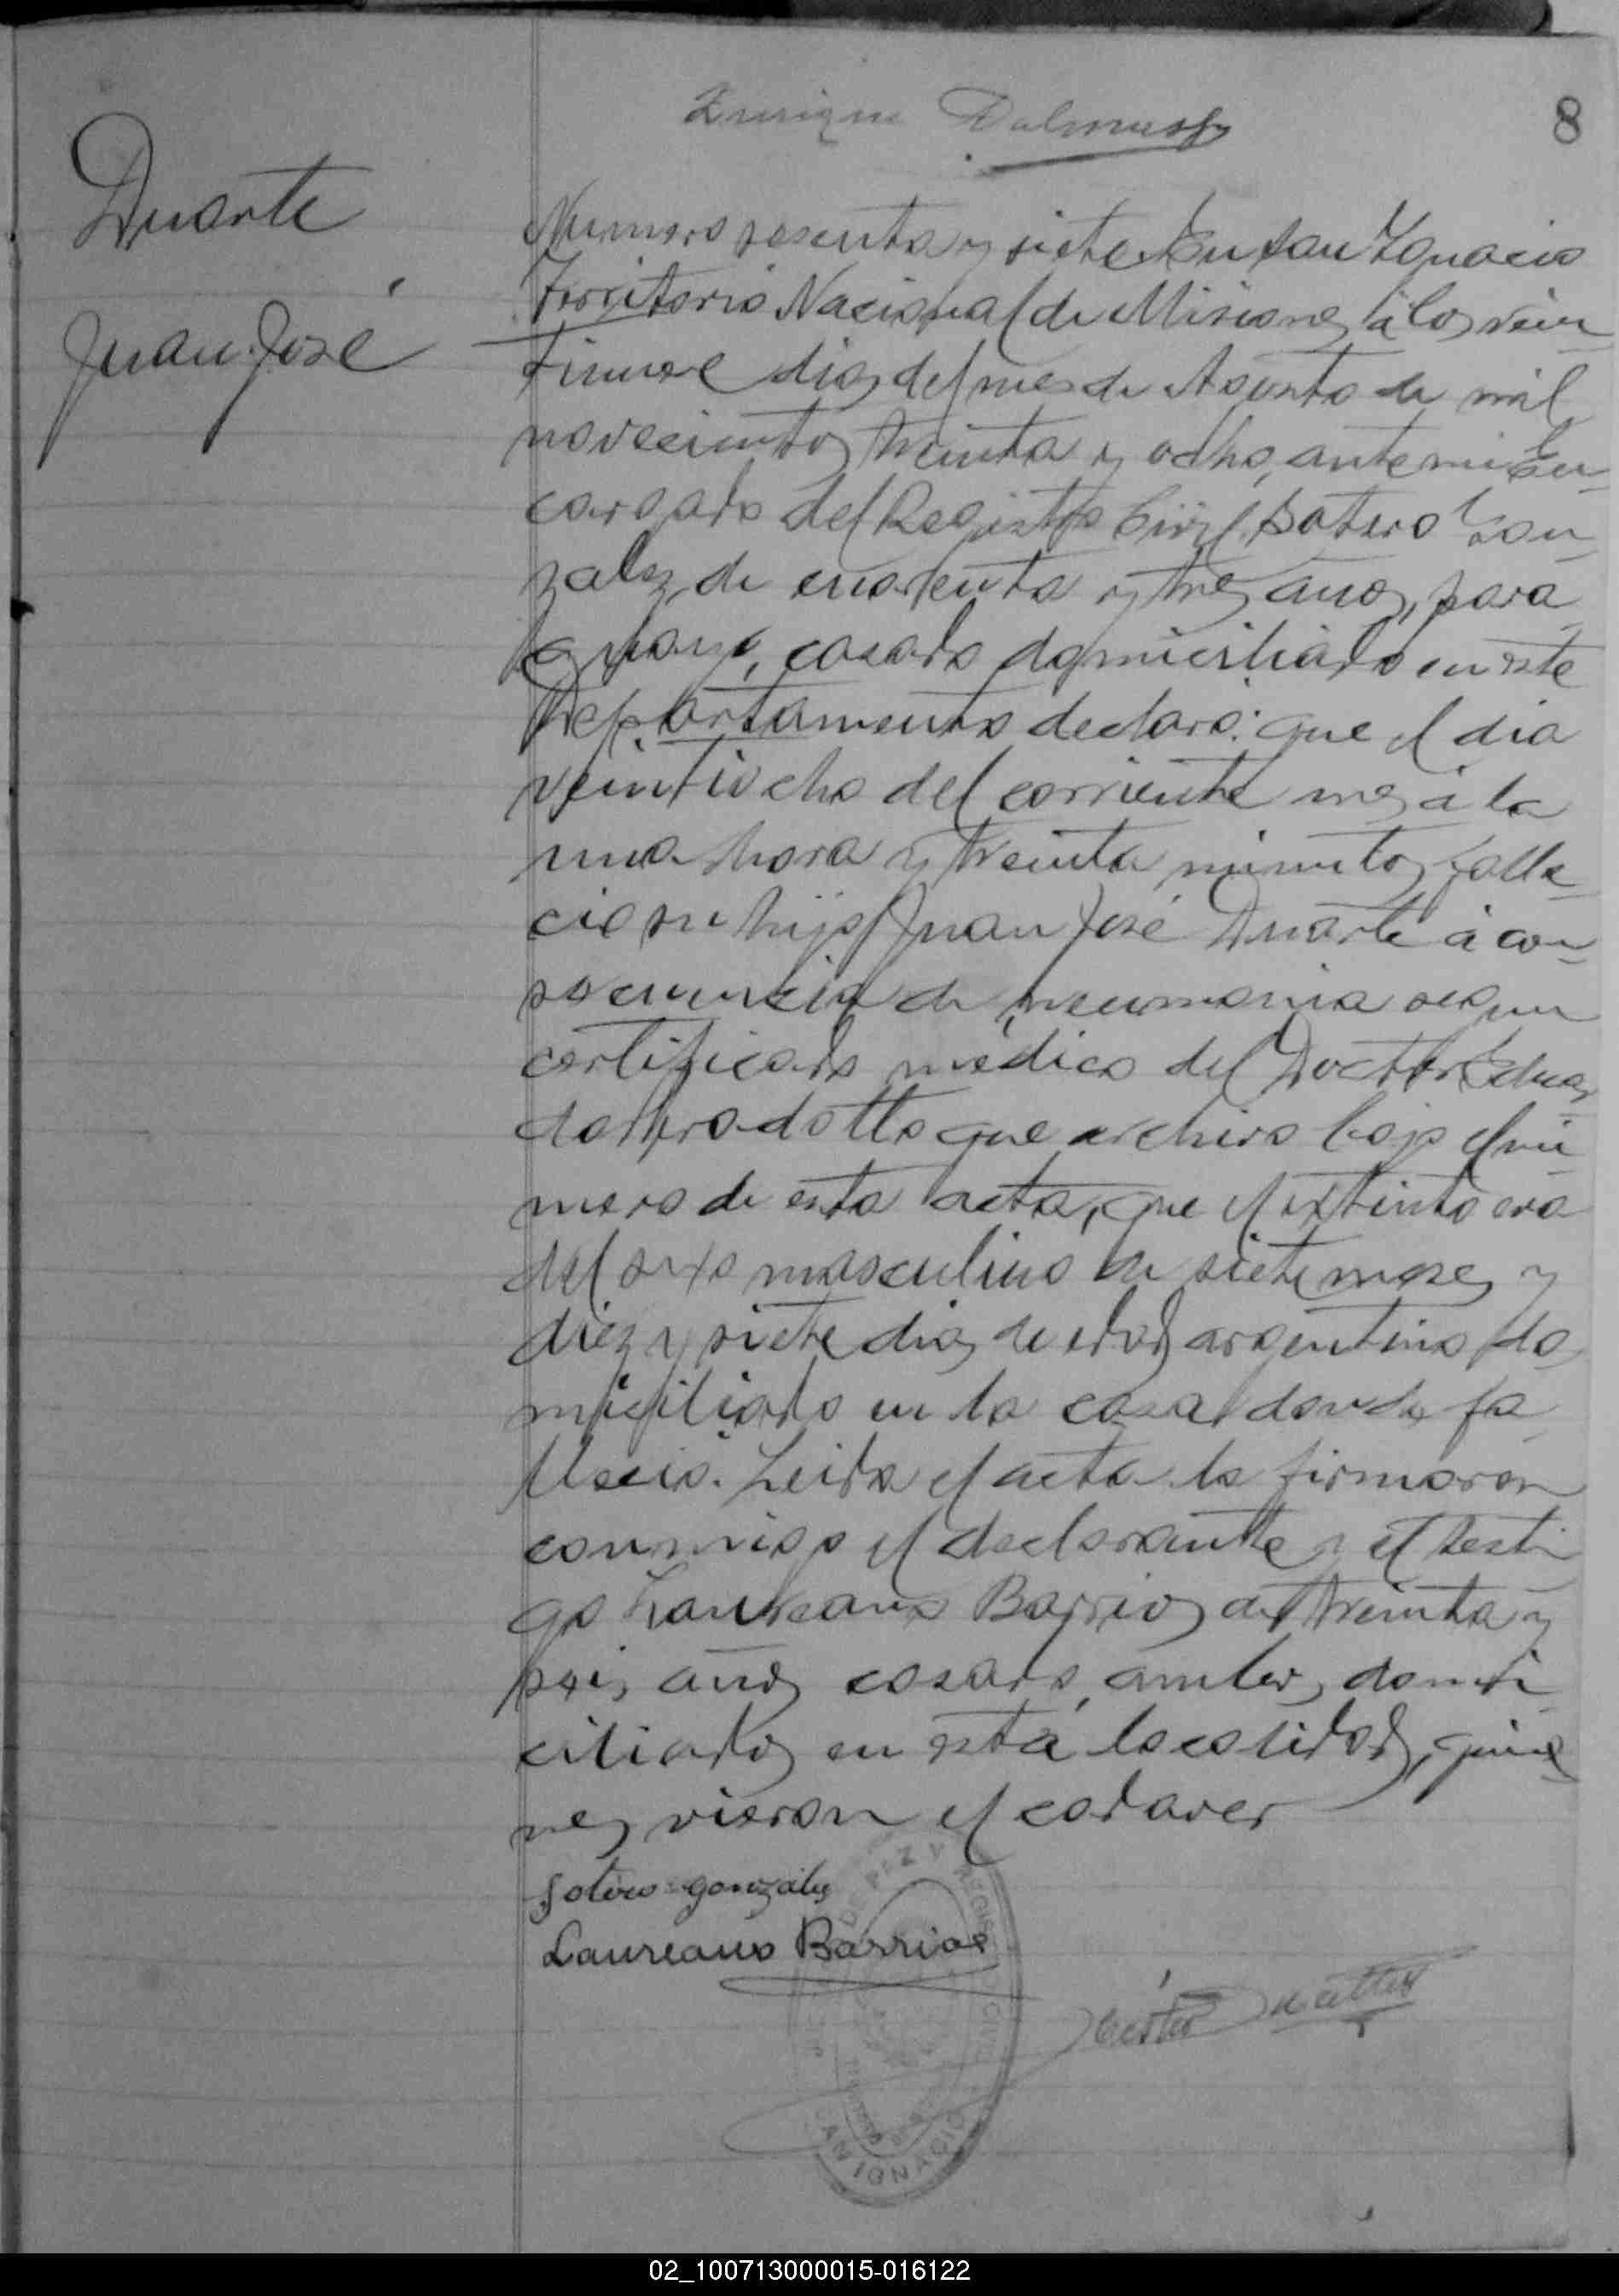 8
Duarte
Juan José
Numero sesenta y siete En San Ignacio
Territorio Nacional de Misiones, á los vein
tinueve dias del mes de Agosto de mil
novecientos treinta y ocho, ante mi En
cargado del Registro Civil, Sotero Gon
zalez, de cuarenta y tres años, para
guayo, casado domiciliado en este
Departamento declaró: que el dia
veintiocho del corriente mes á la
una hora y treinta minutos falle
cio su hijo Juan José Duarte á con
secuencia de neumonia segun
certificado médico del Doctor Eduar
do Pradotto que archivo bajo el nú
mero de esta acta, que el extinto era
del sexo masculino de siete meses y
diez y siete dias de edad argentino do
miciliado en la casa donde fa
llecio. Leida el acta la firmaron
conmigo el declarante y el testi
go Laureano Barrios de treinta y
seis años casado, ambos domi
ciliados en esta localidad, quie
nes vieron el cadaver
Sotero Gonzalez
Laureano Barrios
SAN IGNACIO
02_100713000015-016122